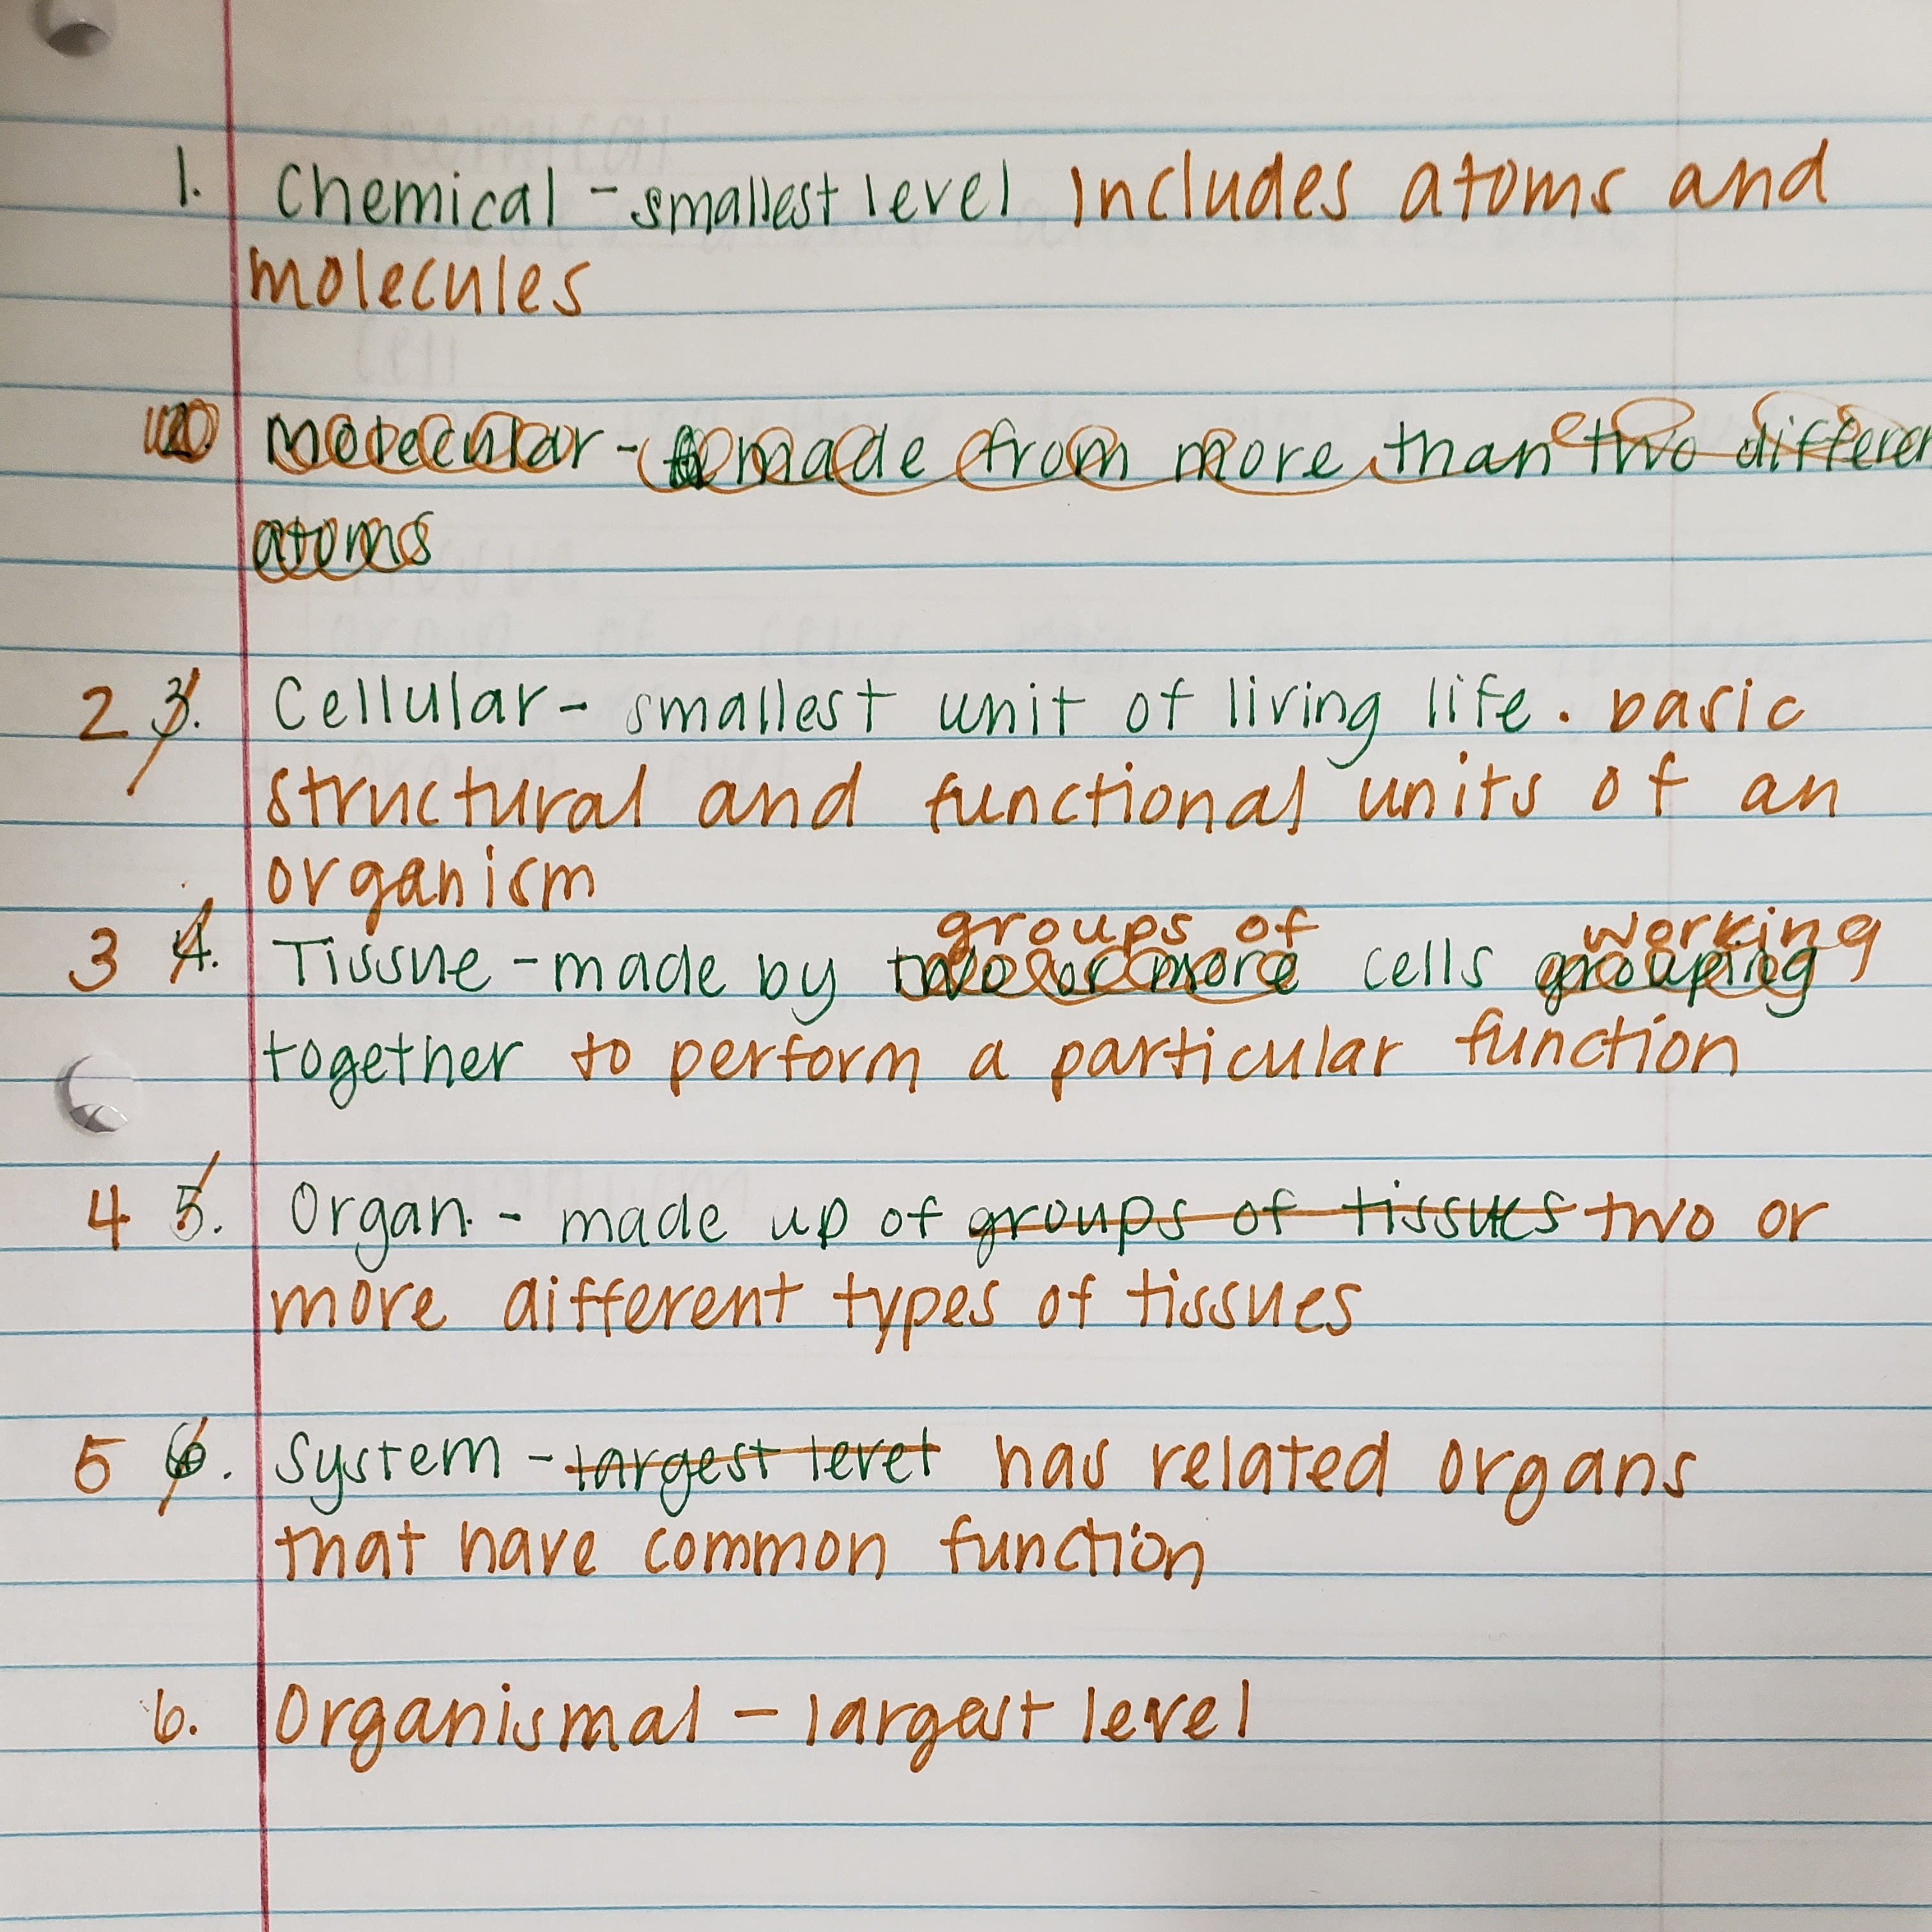 1. Chemical - smallest level Includes atoms and
molecules
2. Molecular - made from more than two differen
atoms
2 3. Cellular - smallest unit of living life. basic
structural and functional units of an
organism
groups of working
3 4. Tissue - made by two or more cells grouping
together to perform a particular function
4 5. Organ - made up of groups of tissues two or
more different types of tissues
5 6. System - largest level has related organs
that have common function
6. Organismal - largest level